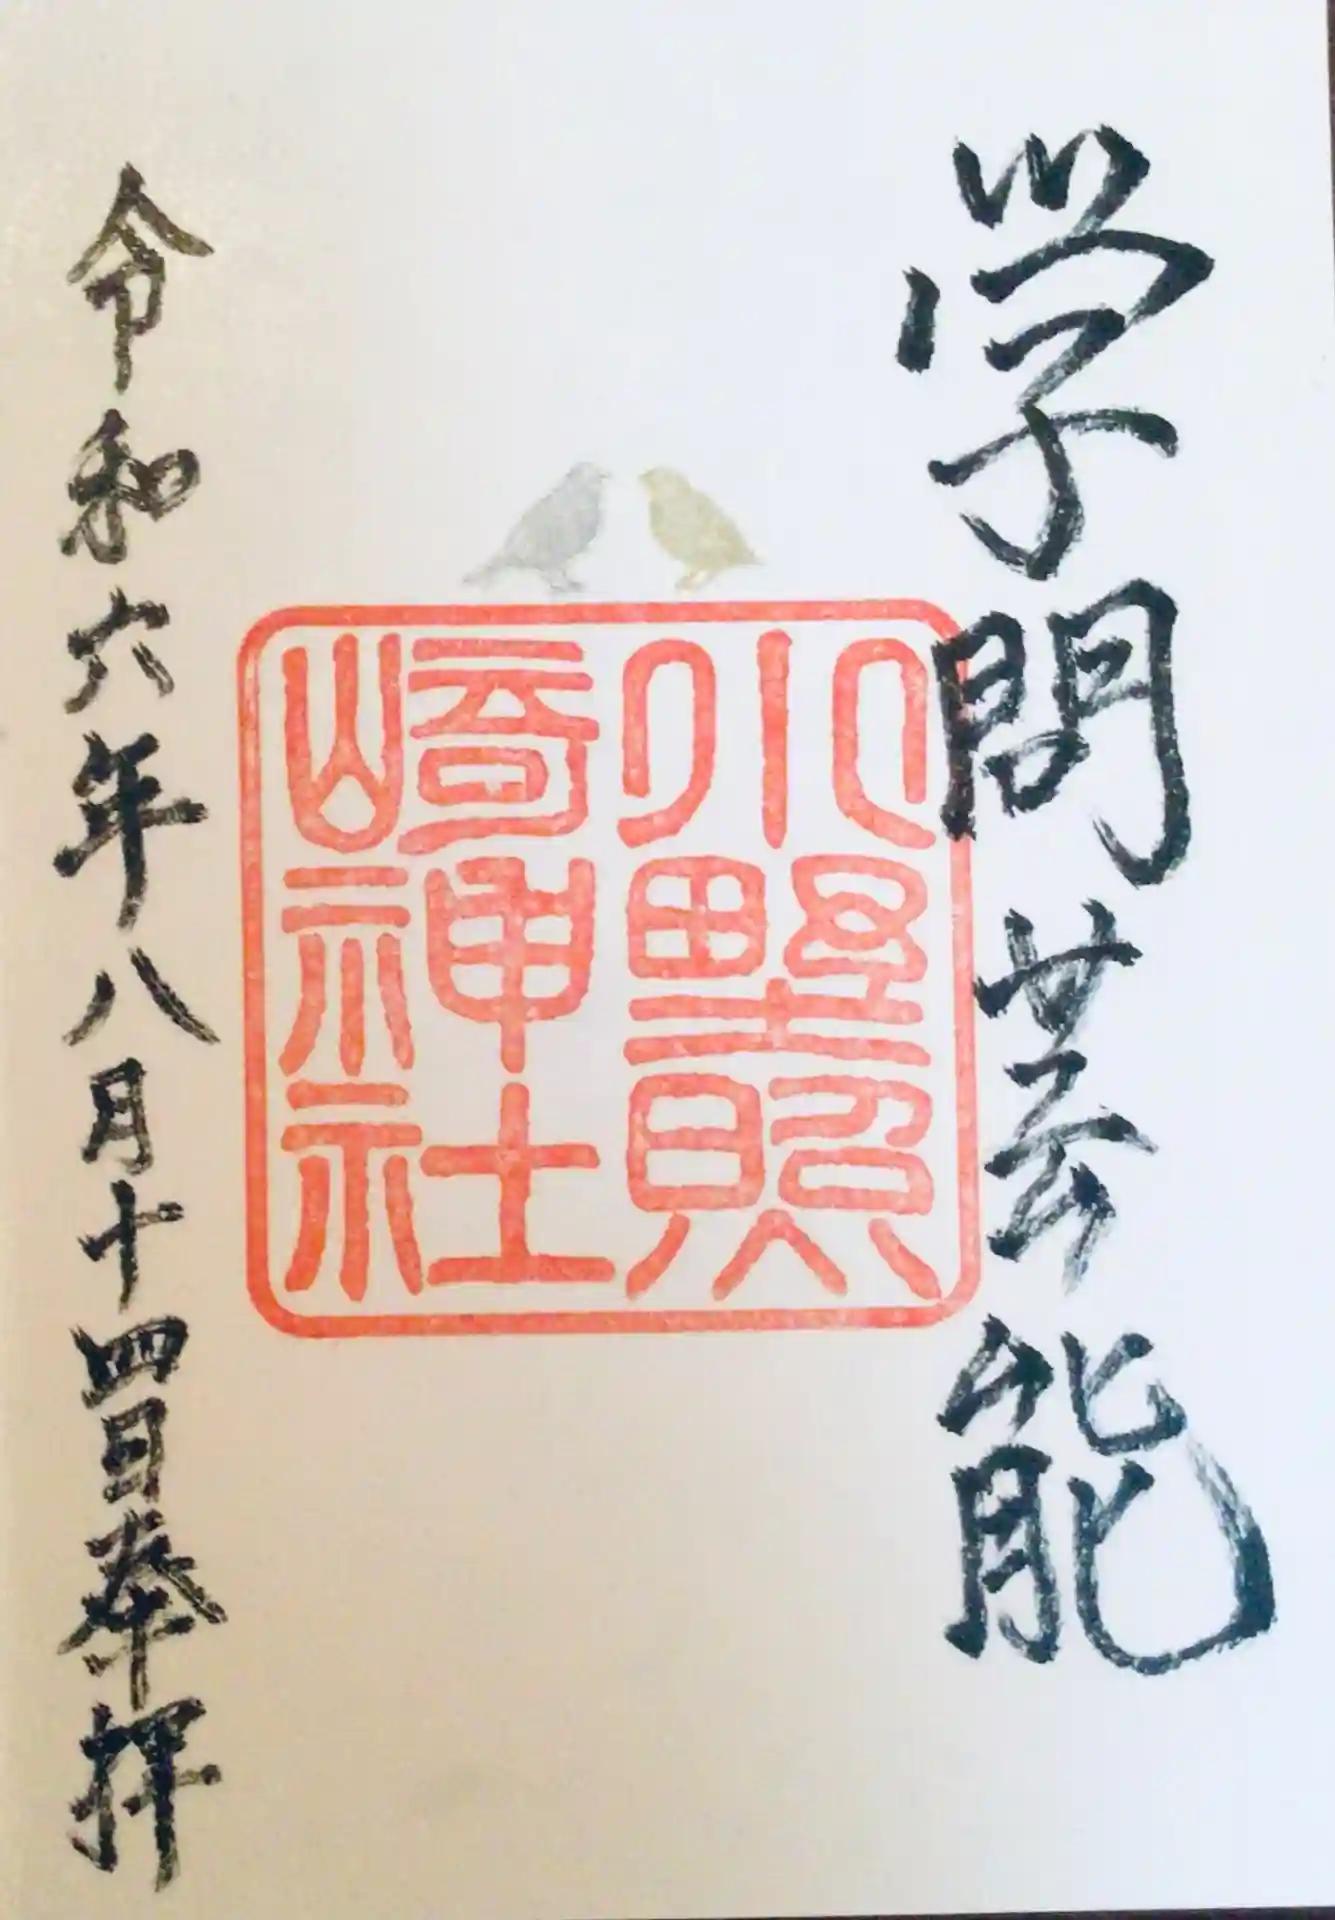 学問芸能
小野照
崎神社
令和六年八月十四日奉拝